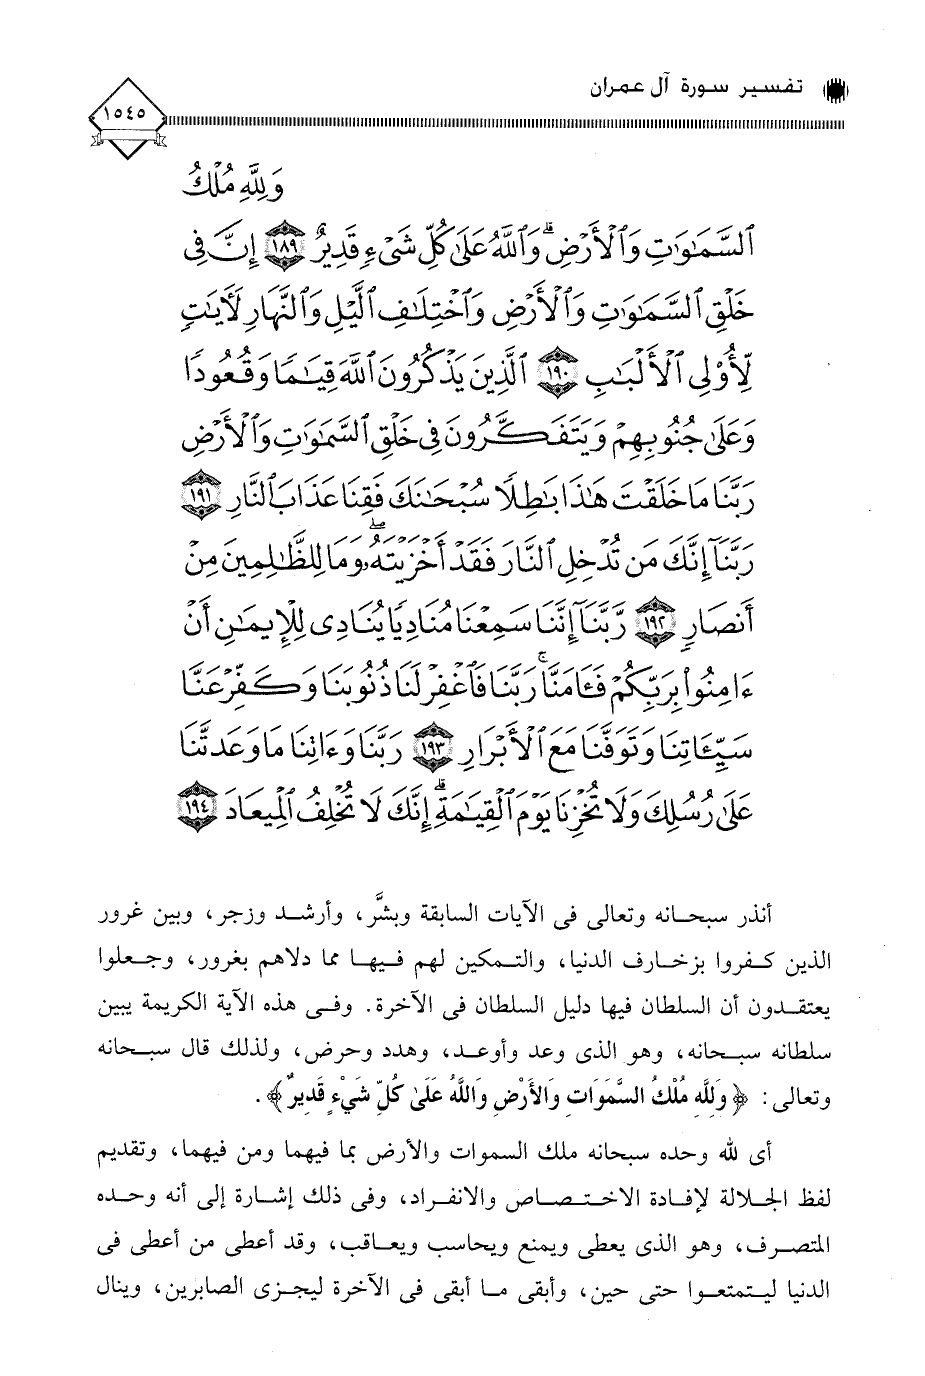 تفسير سورة آل عمران
١٥٤٥
وَلِلَّهِ مُلْكُ
ٱلسَّمَٰوَٰتِ وَٱلْأَرْضِ ۗ وَٱللَّهُ عَلَىٰ كُلِّ شَىْءٍ قَدِيرٌ ١٨٩ إِنَّ فِى
خَلْقِ ٱلسَّمَٰوَٰتِ وَٱلْأَرْضِ وَٱخْتِلَٰفِ ٱلَّيْلِ وَٱلنَّهَارِ لَأَيَٰتٍ
لِّأُو۟لِى ٱلْأَلْبَٰبِ ١٩٠ ٱلَّذِينَ يَذْكُرُونَ ٱللَّهَ قِيَٰمًا وَقُعُودًا
وَعَلَىٰ جُنُوبِهِمْ وَيَتَفَكَّرُونَ فِى خَلْقِ ٱلسَّمَٰوَٰتِ وَٱلْأَرْضِ
رَبَّنَا مَا خَلَقْتَ هَٰذَا بَٰطِلًا سُبْحَٰنَكَ فَقِنَا عَذَابَ ٱلنَّارِ ١٩١
رَبَّنَآ إِنَّكَ مَن تُدْخِلِ ٱلنَّارَ فَقَدْ أَخْزَيْتَهُۥ ۖ وَمَا لِلظَّٰلِمِينَ مِنْ
أَنصَارٍ ١٩٢ رَّبَّنَآ إِنَّنَا سَمِعْنَا مُنَادِيًا يُنَادِى لِلْإِيمَٰنِ أَنْ
ءَامِنُوا۟ بِرَبِّكُمْ فَـَٔامَنَّا ۚ رَبَّنَا فَٱغْفِرْ لَنَا ذُنُوبَنَا وَكَفِّرْ عَنَّا
سَيِّـَٔاتِنَا وَتَوَفَّنَا مَعَ ٱلْأَبْرَارِ ١٩٣ رَبَّنَا وَءَاتِنَا مَا وَعَدتَّنَا
عَلَىٰ رُسُلِكَ وَلَا تُخْزِنَا يَوْمَ ٱلْقِيَٰمَةِ ۗ إِنَّكَ لَا تُخْلِفُ ٱلْمِيعَادَ ١٩٤
أنذر سبحانه وتعالى فى الآيات السابقة وبشَّر، وأرشد وزجر، وبين غرور
الذين كفروا بزخارف الدنيا، والتمكين لهم فيها مما دلاهم بغرور، وجعلوا
يعتقدون أن السلطان فيها دليل السلطان فى الآخرة. وفى هذه الآية الكريمة يبين
سلطانه سبحانه، وهو الذى وعد وأوعد، وهدد وحرض، ولذلك قال سبحانه
وتعالى: ﴿وَلِلَّهِ مُلْكُ السَّمَوَاتِ وَالأَرْضِ وَاللَّهُ عَلَىٰ كُلِّ شَيْءٍ قَدِيرٌ﴾.
أى لله وحده سبحانه ملك السموات والأرض بما فيهما ومن فيهما، وتقديم
لفظ الجلالة لإفادة الاختصاص والانفراد، وفى ذلك إشارة إلى أنه وحده
المتصرف، وهو الذى يعطى ويمنع ويحاسب ويعاقب، وقد أعطى من أعطى فى
الدنيا ليتمتعوا حتى حين، وأبقى ما أبقى فى الآخرة ليجزى الصابرين، وينال